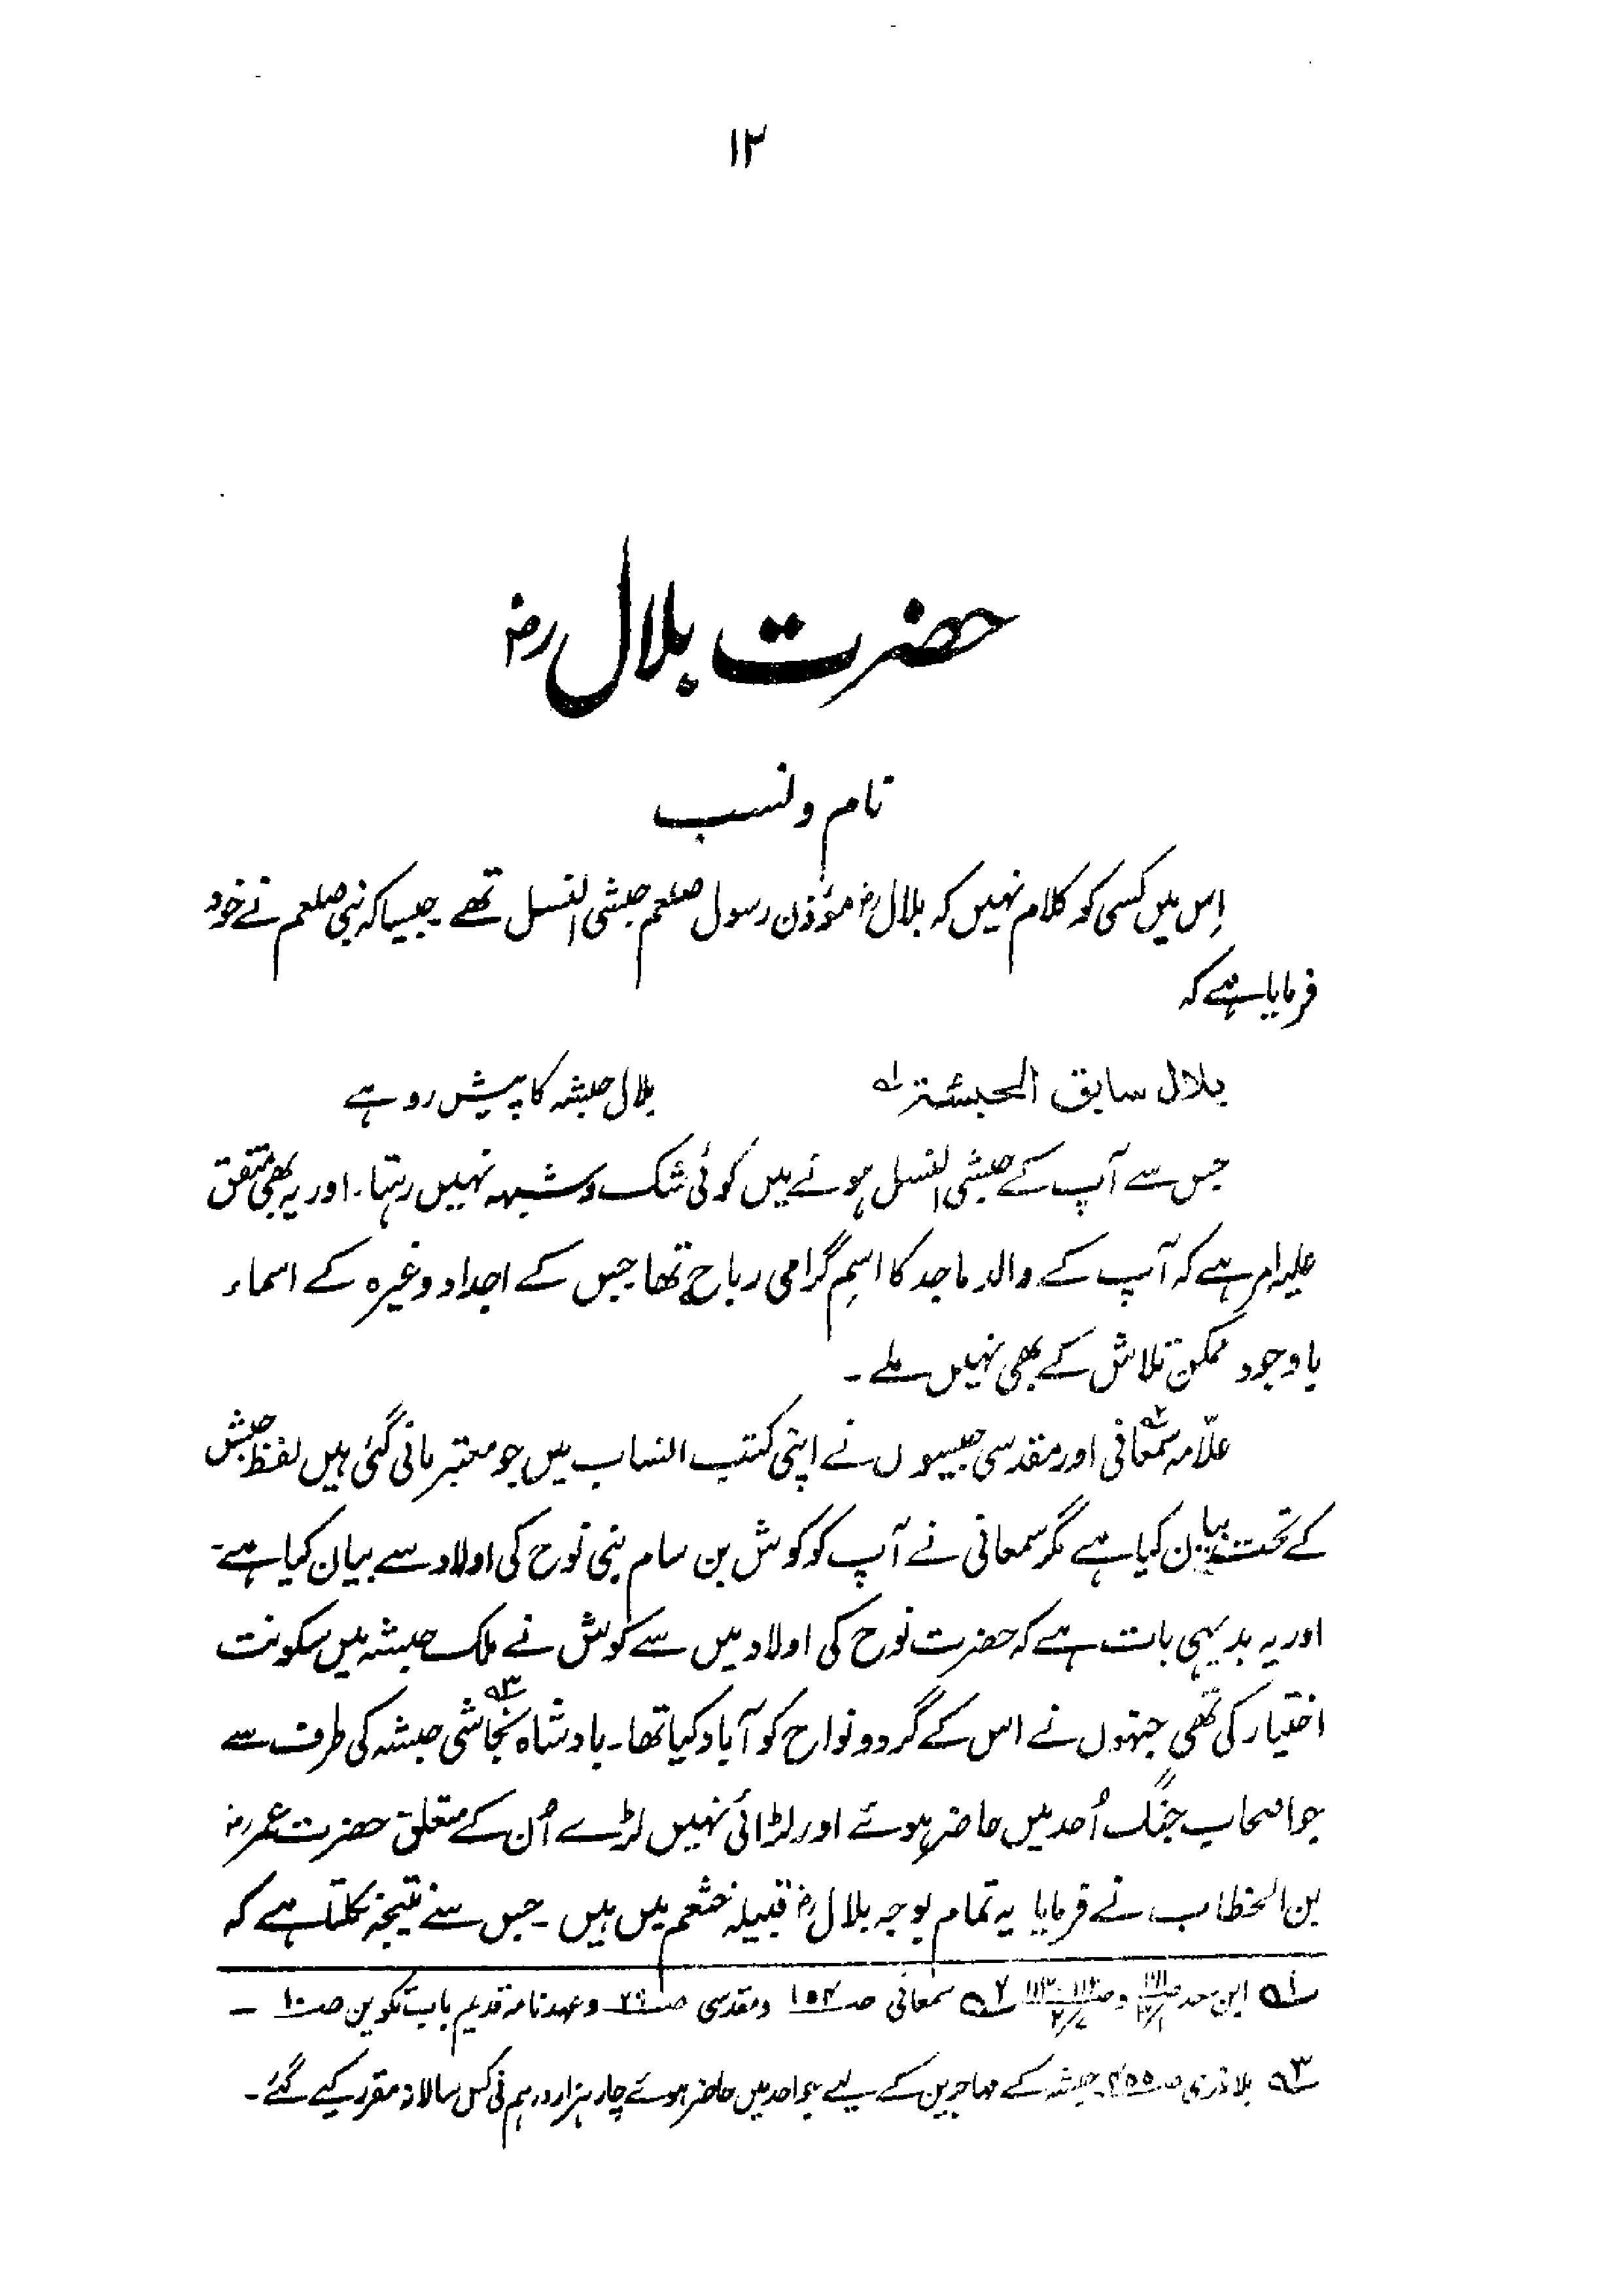 ۱۲
حضرت بلال رض
نام و نسب
اِس میں کسی کو کلام نہیں کہ بلال رض مؤذن رسول صلعم حبشی النسل تھے۔ جیسا کہ نبی صلعم نے خود
فرمایا ہے کہ
بلال سابق الحبشة لہ بلال حبشہ کا پیش رو ہے
جس سے آپ کے حبشی النسل ہونے میں کوئی شک و شبہہ نہیں رہتا۔ اور یہ بھی متفق
علیہ امر ہے کہ آپ کے والد ماجد کا اسمِ گرامی رباح تھا جس کے اجداد وغیرہ کے اسماء
باوجود ممکن تلاش کے بھی نہیں ملے۔
علّامہ سمعانی ۲ اور مقدسی جیسوں نے اپنی کتب انساب میں جو معتبر مانی گئی ہیں لفظ حبش
کے تحت بیان کیا ہے مگر سمعانی نے آپ کو کوش بن سام بنی نوح کی اولاد سے بیان کیا ہے۔
اور یہ بدیہی بات ہے کہ حضرت نوح کی اولاد میں سے کوش نے ملک حبشہ میں سکونت
اختیار کی تھی جنہوں نے اس کے گرد و نواح کو آباد کیا تھا۔ بادشاہ نجاشی ۳ حبشہ کی طرف سے
جو اصحاب جنگ اُحد میں حاضر ہوئے اور لڑائی نہیں لڑے اُن کے متعلق حضرت عمر رض
بن الخطاب نے فرمایا یہ تمام بوجہ بلال رض قبیلہ خثعم میں ہیں۔ جس سے نتیجہ نکلتا ہے کہ
۱ ابن سعد و ۲ سمعانی صـ ۱۵۴ و مقدسی صـ ۲۹ و عہد نامہ قدیم باب تکوین صـ ۱۰ –
۳ بلاذری صـ ۴۵۵ حبشہ کے مہاجرین کے لیے جو احد میں حاضر ہوئے چار ہزار درہم فی کس سالانہ مقرر کیے گئے۔